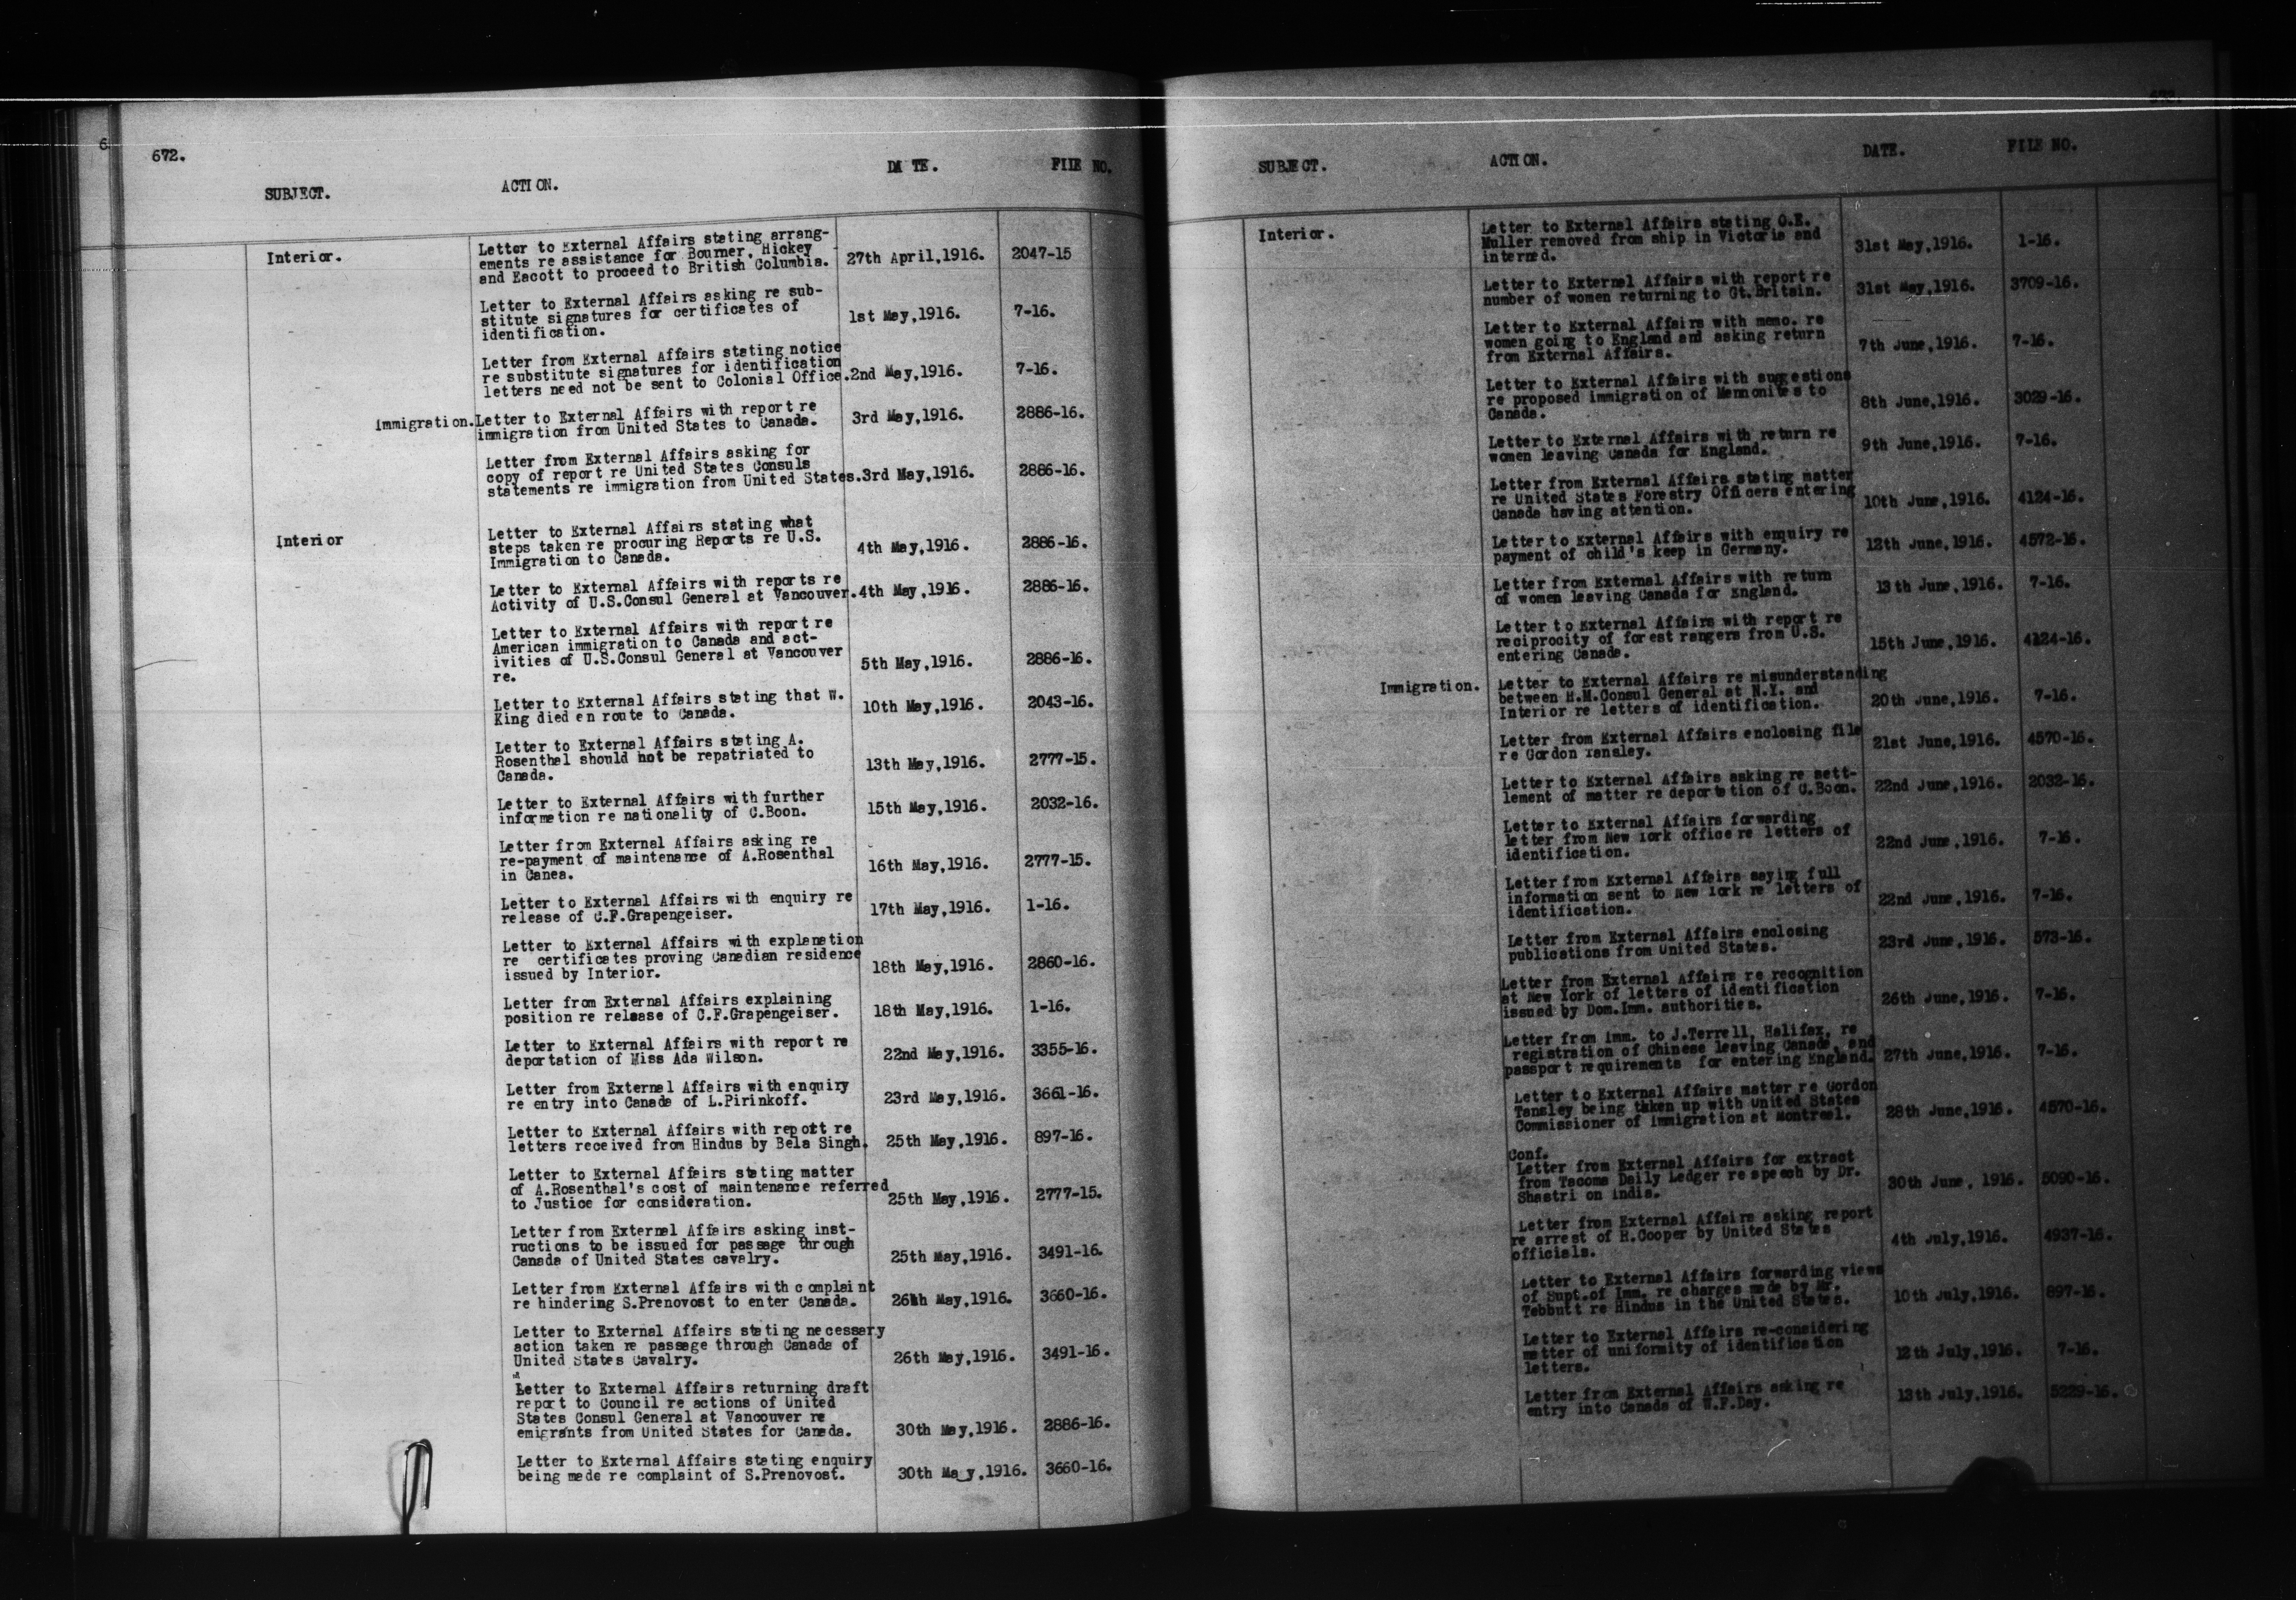 672.
SUBJECT. ACTION. DATE. FILE NO.
Interior. Letter to External Affairs stating arrang-
ements re assistance for Bourner, Hickey
and Eacott to proceed to British Columbia. 27th April,1916. 2047-15
Letter to External Affairs asking re sub-
stitute signatures for certificates of
identification. 1st May,1916. 7-16.
Letter from External Affairs stating notice
re substitute signatures for identification
letters need not be sent to Colonial Office. 2nd May,1916. 7-16.
Immigration. Letter to External Affairs with report re
immigration from United States to Canada. 3rd May,1916. 2886-16.
Letter from External Affairs asking for
copy of report re United States Consuls
statements re immigration from United States. 3rd May,1916. 2886-16.
Interior Letter to External Affairs stating what
steps taken re procuring Reports re U.S.
Immigration to Canada. 4th May,1916. 2886-16.
Letter to External Affairs with reports re
Activity of U.S.Consul General at Vancouver. 4th May,1916. 2886-16.
Letter to External Affairs with report re
American immigration to Canada and act-
ivities of U.S.Consul General at Vancouver
re. 5th May,1916. 2886-16.
Letter to External Affairs stating that W.
King died en route to Canada. 10th May,1916. 2043-16.
Letter to External Affairs stating A.
Rosenthal should not be repatriated to
Canada. 13th May,1916. 2777-15.
Letter to External Affairs with further
information re nationality of C.Boon. 15th May,1916. 2032-16.
Letter from External Affairs asking re
re-payment of maintenance of A.Rosenthal
in Canea. 16th May,1916. 2777-15.
Letter to External Affairs with enquiry re
release of C.F.Grapengeiser. 17th May,1916. 1-16.
Letter to External Affairs with explanation
re certificates proving Canadian residence
issued by Interior. 18th May,1916. 2860-16.
Letter from External Affairs explaining
position re release of C.F.Grapengeiser. 18th May,1916. 1-16.
Letter to External Affairs with report re
deportation of Miss Ada Wilson. 22nd May,1916. 3355-16.
Letter from External Affairs with enquiry
re entry into Canada of L.Pirinkoff. 23rd May,1916. 3661-16.
Letter to External Affairs with report re
letters received from Hindus by Bela Singh. 25th May,1916. 897-16.
Letter to External Affairs stating matter
of A.Rosenthal's cost of maintenance referred
to Justice for consideration. 25th May,1916. 2777-15.
Letter from External Affairs asking inst-
ructions to be issued for passage through
Canada of United States cavalry. 25th May,1916. 3491-16.
Letter from External Affairs with complaint
re hindering S.Prenovost to enter Canada. 26th May,1916. 3660-16.
Letter to External Affairs stating necessary
action taken re passage through Canada of
United States Cavalry. 26th May,1916. 3491-16.
Letter to External Affairs returning draft
report to Council re actions of United
States Consul General at Vancouver re
emigrants from United States for Canada. 30th May,1916. 2886-16.
Letter to External Affairs stating enquiry
being made re complaint of S.Prenovost. 30th May,1916. 3660-16.
673.
SUBJECT. ACTION. DATE. FILE NO.
Interior. Letter to External Affairs stating O.E.
Muller removed from ship in Victoria and
interned. 31st May,1916. 1-16.
Letter to External Affairs with report re
number of women returning to Gt.Britain. 31st May,1916. 3709-16.
Letter to External Affairs with memo. re
women going to England and asking return
from External Affairs. 7th June,1916. 7-16.
Letter to External Affairs with suggestions
re proposed immigration of Mennonites to
Canada. 8th June,1916. 3029-16.
Letter to External Affairs with return re
women leaving Canada for England. 9th June,1916. 7-16.
Letter from External Affairs stating matter
re United States Forestry Officers entering
Canada having attention. 10th June,1916. 4124-16.
Letter to External Affairs with enquiry re
payment of child's keep in Germany. 12th June,1916. 4572-16.
Letter from External Affairs with return
of women leaving Canada for England. 13th June,1916. 7-16.
Letter to External Affairs with report re
reciprocity of forest rangers from U.S.
entering Canada. 15th June,1916. 4124-16.
Immigration. Letter to External Affairs re misunderstanding
between H.M.Consul General at N.Y. and
Interior re letters of identification. 20th June,1916. 7-16.
Letter from External Affairs enclosing file
re Gordon Tansley. 21st June,1916. 4570-16.
Letter to External Affairs asking re sett-
lement of matter re deportation of C.Boon. 22nd June,1916. 2032-16.
Letter to External Affairs forwarding
letter from New York office re letters of
identification. 22nd June,1916. 7-16.
Letter from External Affairs saying full
information sent to New York re letters of
identification. 22nd June,1916. 7-16.
Letter from External Affairs enclosing
publications from United States. 23rd June,1916. 573-16.
Letter from External Affairs re recognition
at New York of letters of identification
issued by Dom.Imm. authorities. 26th June,1916. 7-16.
Letter from Imm. to J.Terrell, Halifax, re
registration of Chinese leaving Canada, and
passport requirements for entering England. 27th June,1916. 7-16.
Letter to External Affairs matter re Gordon
Tansley being taken up with United States
Commissioner of Immigration at Montreal. 28th June,1916. 4570-16.
Conf.
Letter from External Affairs for extract
from Tacoma Daily Ledger re speech by Dr.
Shastri on India. 30th June, 1916. 5090-16.
Letter from External Affairs asking report
re arrest of H.Cooper by United States
officials. 4th July,1916. 4937-16.
Letter to External Affairs forwarding views
of Supt.of Imm. re charges made by Mr.
Tebbutt re Hindus in the United States. 10th July,1916. 897-16.
Letter to External Affairs re-considering
matter of uniformity of identification
letters. 12th July,1916. 7-16.
Letter from External Affairs asking re
entry into Canada of W.F.Day. 13th July,1916. 5229-16.